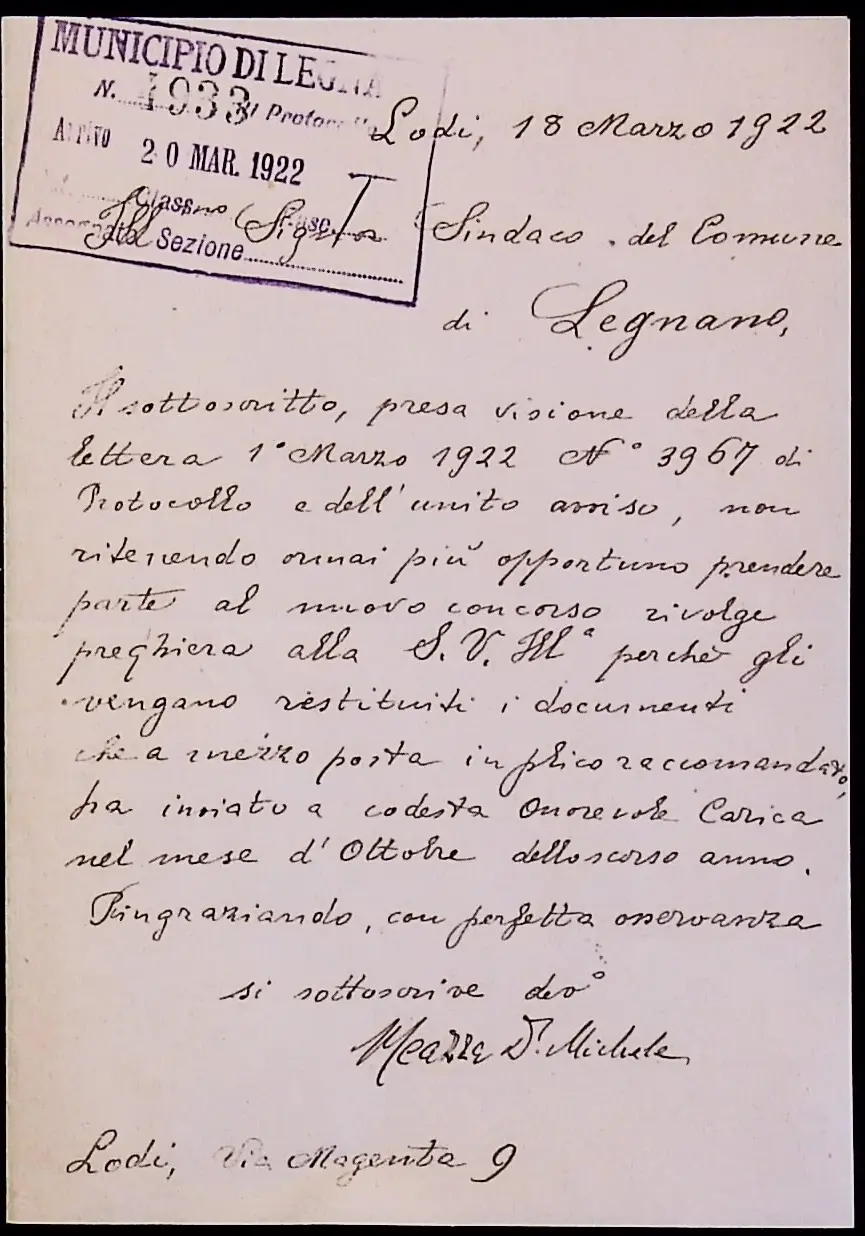 MUNICIPIO DI LEGNA
N. 4933 di Protocollo
Arrivo 20 MAR. 1922
Classe
Sezione
Lodi, 18 Marzo 1922
Ill Signor Sindaco del Comune
di Legnano,
Il sottoscritto, presa visione della
lettera 1° Marzo 1922 N° 3967 di
Protocollo e dell'unito avviso, non
ritenendo ormai più opportuno prendere
parte al nuovo concorso rivolge
preghiera alla S. V. Ill.ª perchè gli
vengano restituiti i documenti
che a mezzo posta in plico raccomandato,
ha inviato a codesta Onorevole Carica
nel mese d'Ottobre dello scorso anno.
Ringraziando, con perfetta osservanza
si sottoscrive dev°
Meazza Dr. Michele
Lodi, Via Magenta 9